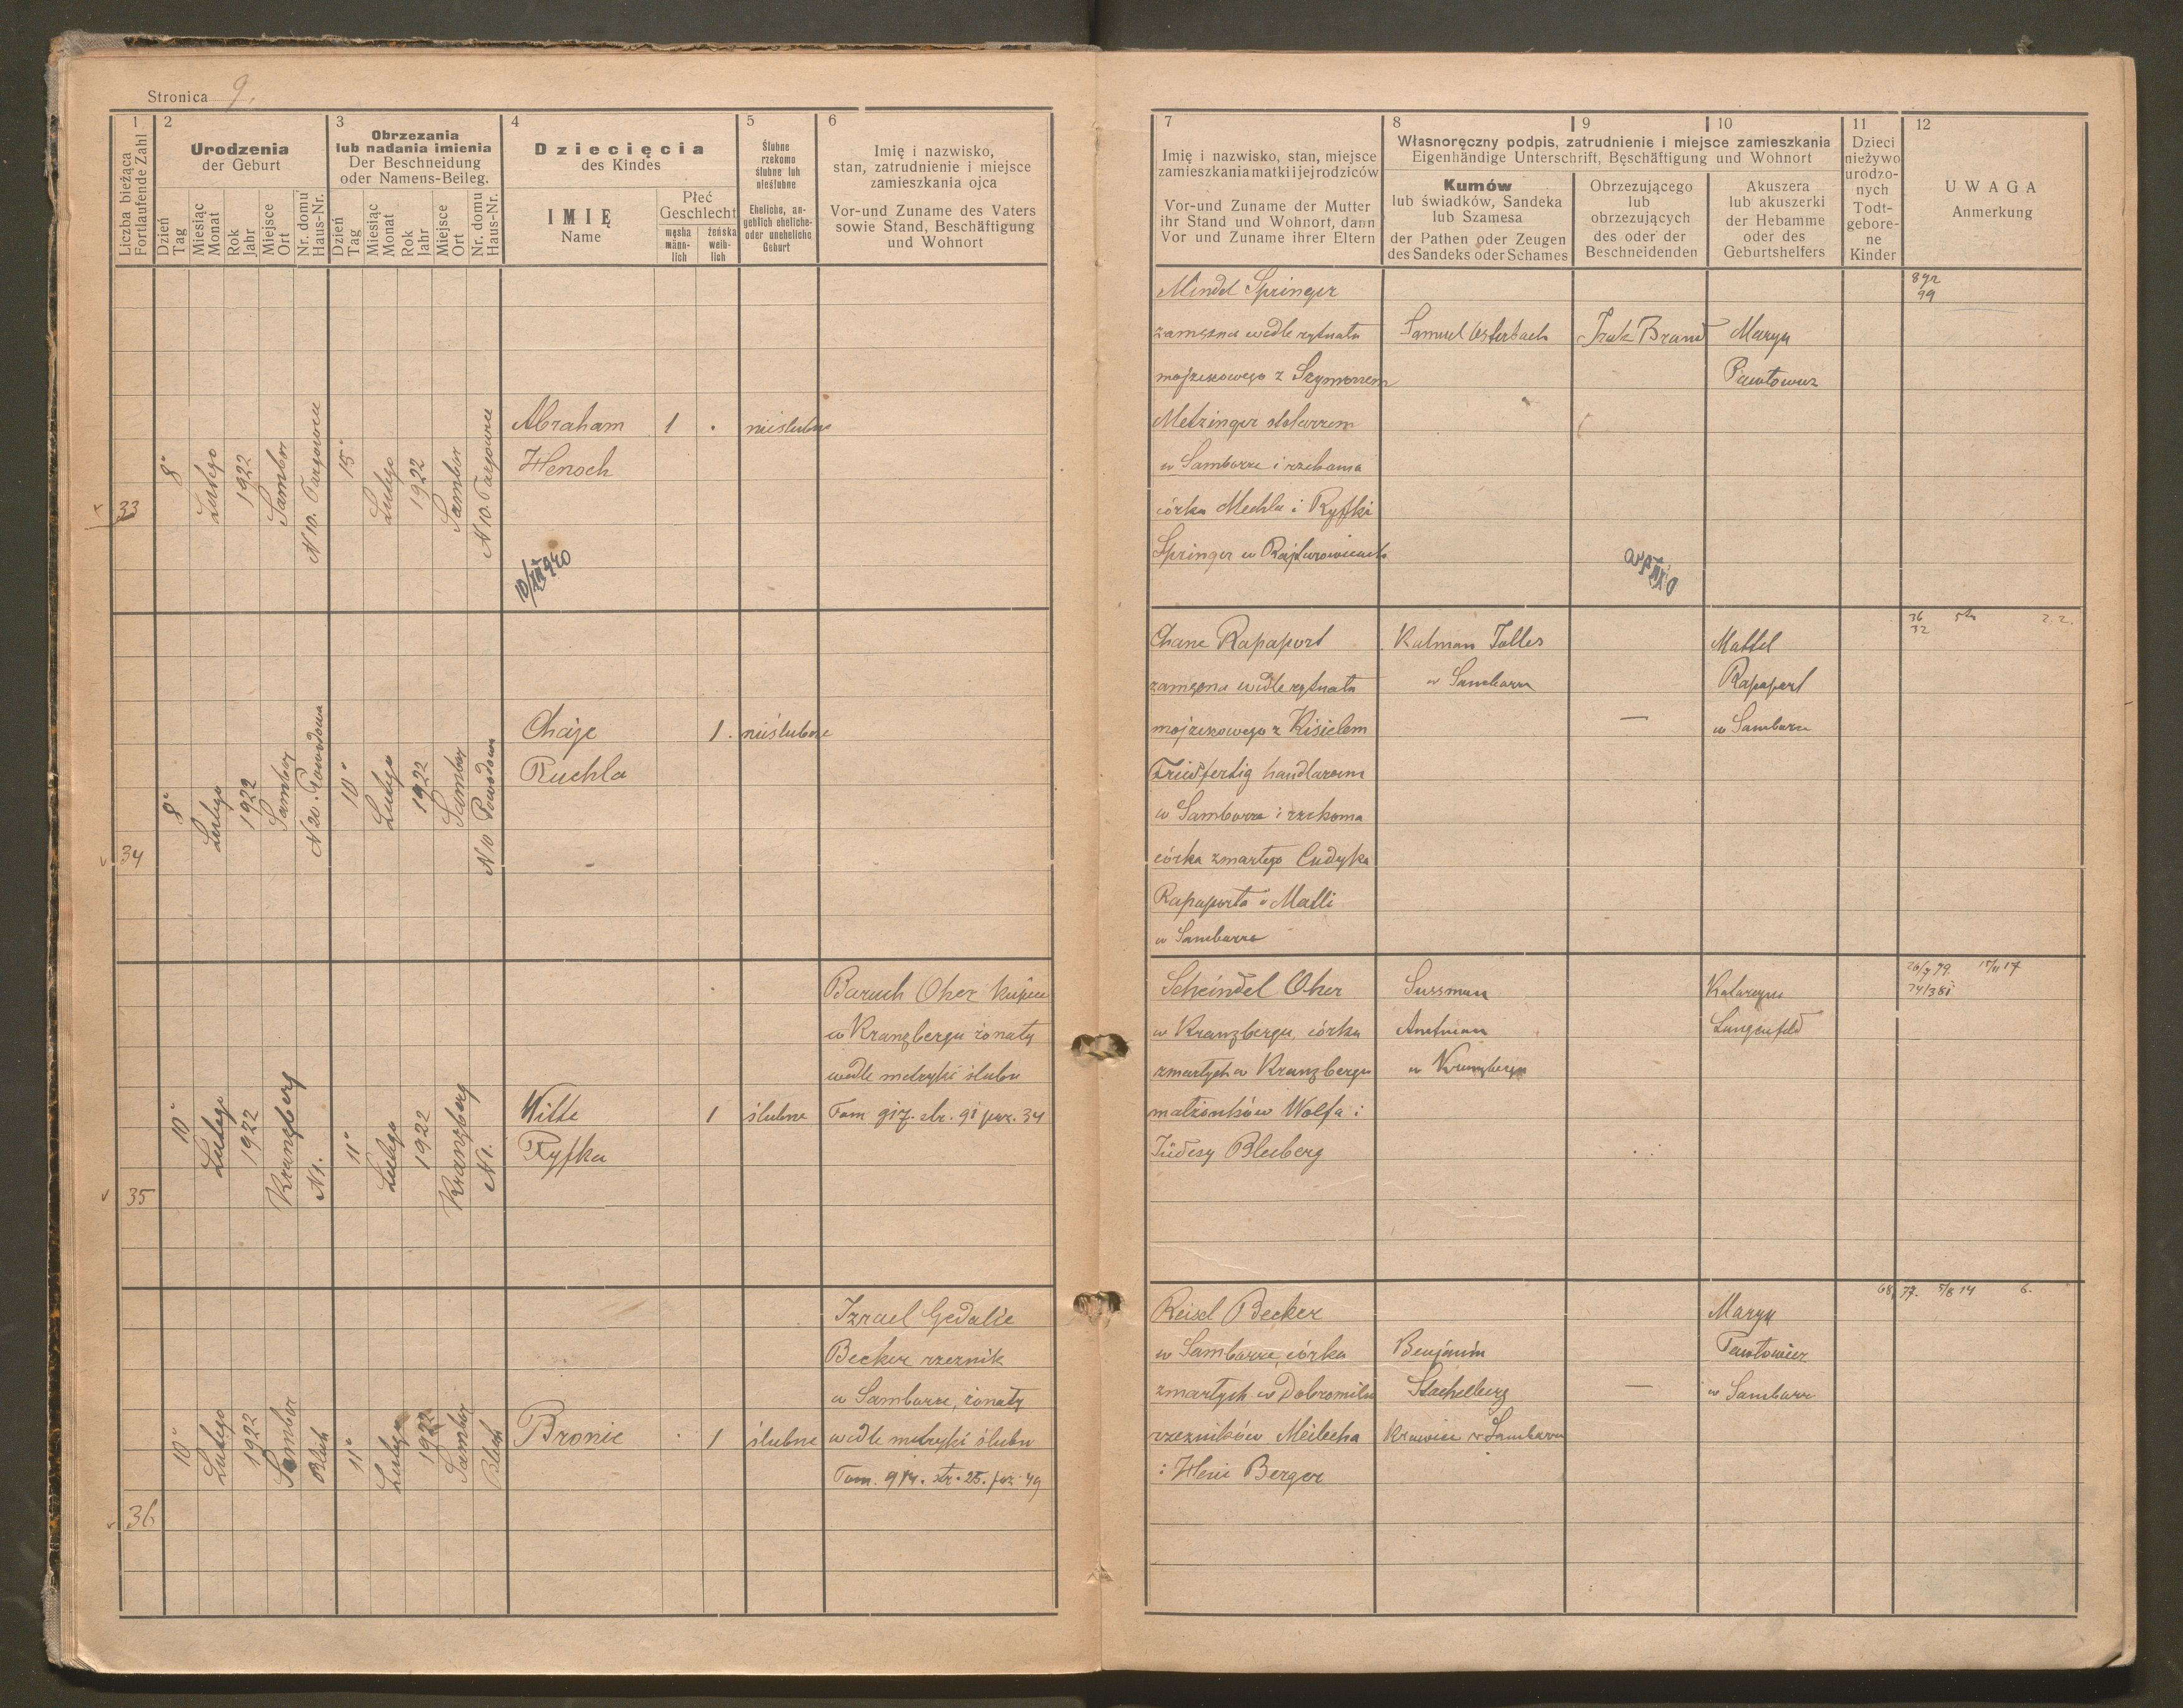 Stronica 9.
1
Liczba bieżąca
Fortlaufende Zahl
2
Urodzenia
der Geburt
Dzień
Tag
Miesiąc
Monat
Rok
Jahr
Miejsce
Ort
Nr. domu
Haus-Nr.
3
Obrzezania
lub nadania imienia
Der Beschneidung
oder Namens-Beileg.
Dzień
Tag
Miesiąc
Monat
Rok
Jahr
Miejsce
Ort
Nr. domu
Haus-Nr.
4
Dziecięcia
des Kindes
IMIĘ
Name
Płeć
Geschlecht
męska
männ-
lich
żeńska
weib-
lich
5
Ślubne
rzekomo
ślubne lub
nieślubne
Eheliche, an-
geblich eheliche-
oder uneheliche
Geburt
6
Imię i nazwisko,
stan, zatrudnienie i miejsce
zamieszkania ojca
Vor-und Zuname des Vaters
sowie Stand, Beschäftigung
und Wohnort
7
Imię i nazwisko, stan, miejsce
zamieszkania matki i jej rodziców
Vor-und Zuname der Mutter
ihr Stand und Wohnort, dann
Vor und Zuname ihrer Eltern
8
9
10
Własnoręczny podpis, zatrudnienie i miejsce zamieszkania
Eigenhändige Unterschrift, Beschäftigung und Wohnort
Kumów
lub świadków, Sandeka
lub Szamesa
der Pathen oder Zeugen
des Sandeks oder Schames
Obrzezującego
lub
obrzezujących
des oder der
Beschneidenden
Akuszera
lub akuszerki
der Hebamme
oder des
Geburtshelfers
11
Dzieci
nieżywo
urodzo-
nych
Todt-
gebore-
ne
Kinder
12
UWAGA
Anmerkung
33
8
Lutego
1922
Sambor
N 10. Targowica
15
Lutego
1922
Sambor
N 10. Targowica
Abraham
Henoch
1
nieślubne
10/XII 940
Mindel Springer
zamężna wedle rytuału
mojżeszowego z Szymonem
Metzinger stolarzem
w Samborze i rzekoma
córka Mechla i Ryfki
Springer w
Samuel Osterbach
Brand
Marya
Pawłowicz
34
8
Lutego
1922
Sambor
N 20.
10
Lutego
1922
Sambor
N 10
Chaje
Ruchla
1
nieślubne
Chane Rapaport
zamężna wedle rytuału
mojżeszowego z Kisielem
Friedfertig handlarzem
w Samborze i rzekoma
córka zmarłego Cudyka
Rapaporta i Matli
w Samborze
Kalman Talles
w Samborze
—
Mattel
Rapaport
w Samborze
36
32
35
10
Lutego
1922
Kranzberg
N 1.
11
Lutego
1922
Kranzberg
N 1.
Witte
Ryfka
1
ślubne
Baruch Oher kupiec
w Kranzbergu żonaty
wedle metryki ślubu
Tom 917. str. 91 poz. 34
Scheindel Oher
w Kranzbergu, córka
zmarłych w Kranzbergu
małżonków Wolfa i
Judesy Bleiberg
Sussman
Amtman
w Kranzbergu
Katarzyna
Langenfeld
36
10
Lutego
1922
Sambor
Blich
11
Lutego
1922
Sambor
Blich
Bronie
1
ślubne
Izrael Gedalie
Becker rzeznik
w Samborze, żonaty
wedle metryki ślubu
Tom. 914. str. 25. poz 49
Reisel Becker
w Samborze, córka
zmarłych w Dobromilu
rzezników Meilecha
i Heni Berger
Benjamin
Stachelberg
Krawiec w Samborze
—
Marya
Pawłowicz
w Samborze